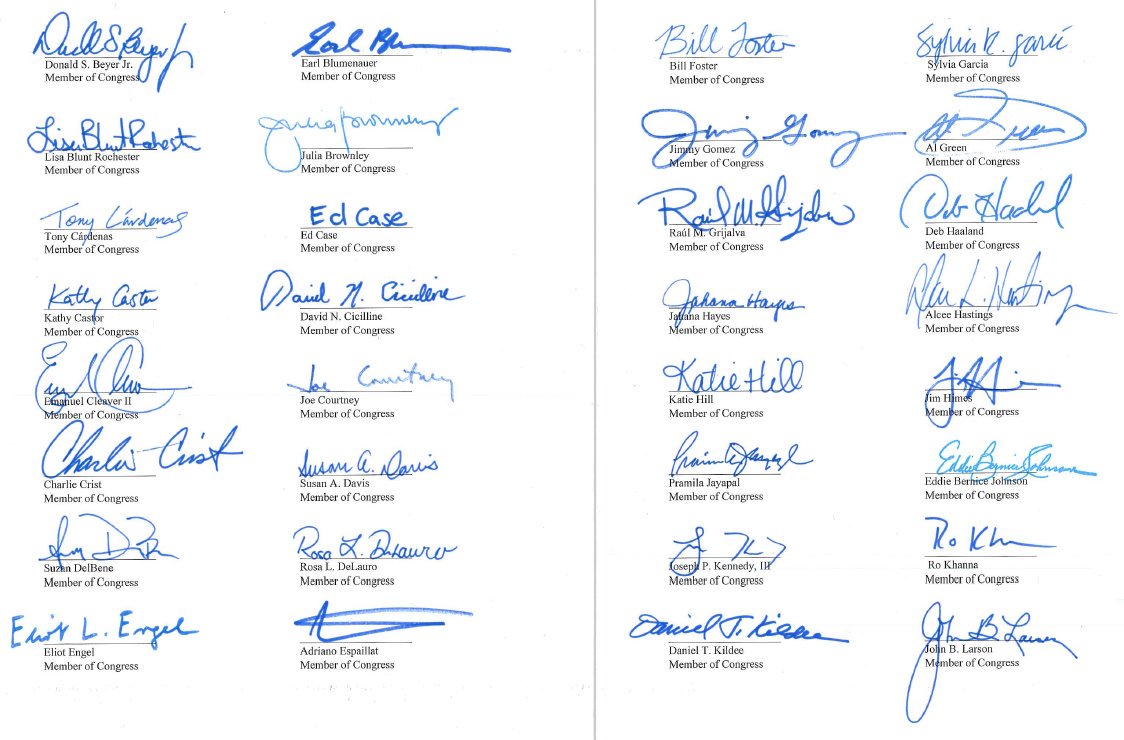 Donald S. Beyer Jr.
Member of Congress
Earl
Earl Blumenauer
Member of Congress
Lisa Blunt Rochester
Lisa Blunt Rochester
Member of Congress
Julia Brownley
Julia Brownley
Member of Congress
Tony Cárdenas
Tony Cárdenas
Member of Congress
Ed Case
Ed Case
Member of Congress
Kathy Castor
Kathy Castor
Member of Congress
David N. Cicilline
David N. Cicilline
Member of Congress
Emanuel Cleaver II
Member of Congress
Joe Courtney
Joe Courtney
Member of Congress
Charlie Crist
Charlie Crist
Member of Congress
Susan A. Davis
Susan A. Davis
Member of Congress
Suzan DelBene
Member of Congress
Rosa L. DeLauro
Rosa L. DeLauro
Member of Congress
Eliot L. Engel
Eliot Engel
Member of Congress
Adriano Espaillat
Member of Congress
Bill Foster
Bill Foster
Member of Congress
Sylvia R. Garcia
Sylvia Garcia
Member of Congress
Jimmy Gomez
Jimmy Gomez
Member of Congress
Al Green
Al Green
Member of Congress
Raúl M. Grijalva
Raúl M. Grijalva
Member of Congress
Deb Haaland
Deb Haaland
Member of Congress
Jahana Hayes
Jahana Hayes
Member of Congress
Alcee L. Hastings
Alcee Hastings
Member of Congress
Katie Hill
Katie Hill
Member of Congress
Jim Himes
Member of Congress
Pramila Jayapal
Pramila Jayapal
Member of Congress
Eddie Bernice Johnson
Eddie Bernice Johnson
Member of Congress
Joseph P. Kennedy, III
Member of Congress
Ro Khanna
Ro Khanna
Member of Congress
Daniel T. Kildee
Daniel T. Kildee
Member of Congress
John B. Larson
John B. Larson
Member of Congress